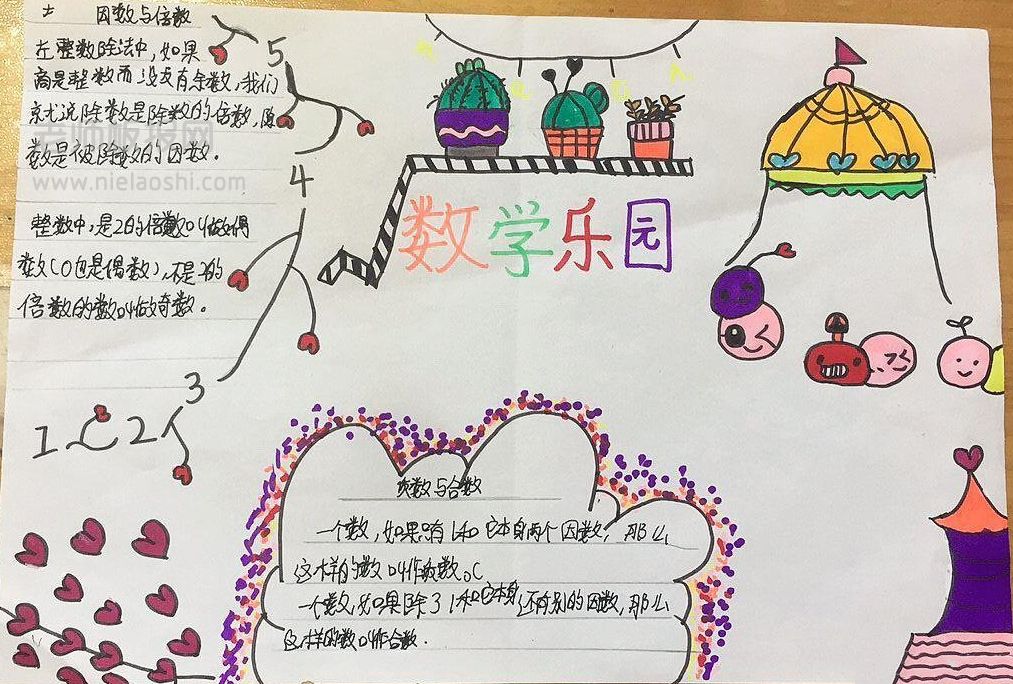 因数与倍数
在整数除法中,如果
商是整数而没有余数,我们
就说除数是除数的倍数,除
数是被除数的因数。
老师板报网
www.nielaoshi.com
整数中,是2的倍数叫做偶
数(0也是偶数),不是2的
倍数的数叫做奇数。
5
4
3
1 2
数学乐园
质数与合数
一个数,如果只有1和它本身两个因数,那么
这样的数叫作质数。
一个数,如果除了1和它本身还有别的因数,那么
这样的数叫作合数.